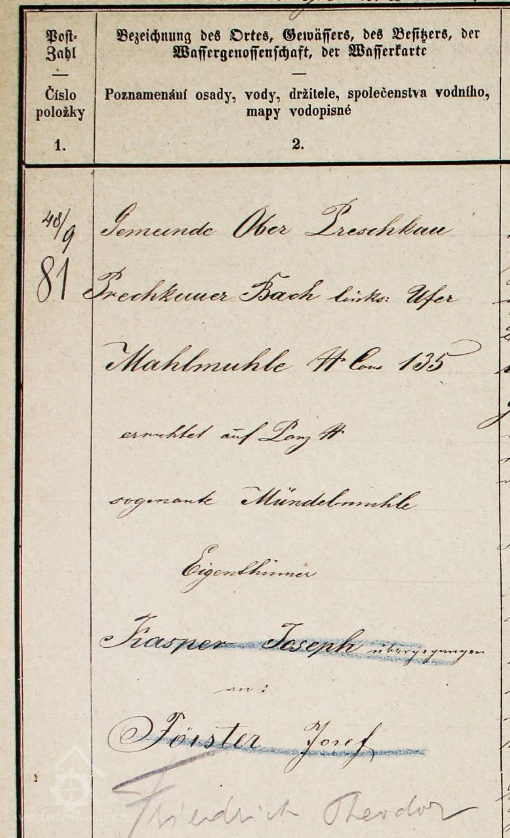 Post-
Zahl
Číslo
položky
1.
Bezeichnung des Ortes, Gewässers, des Besitzers, der
Wassergenossenschaft, der Wasserkarte
Poznamenání osady, vody, držitele, společenstva vodního,
mapy vodopisné
2.
48/9
81
Gemeinde Ober Preschkau
Prechkauer Bach links: Ufer
Mahlmuhle # Cons 135
errichtet auf Parz #
sogenante Mündelmuhle
Eigenthümer
Kasper Joseph übergegangen
an:
Förster Josef
Friedrich Theodor